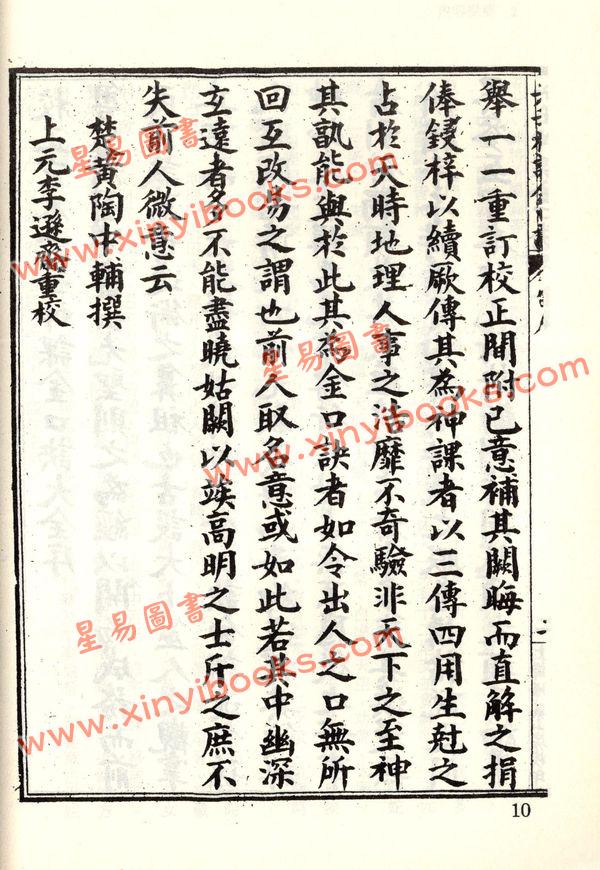 舉一一重訂校正間附已意補其闕晦而直解之捐
俸鋟梓以續厥傳其為神課者以三傳四用生尅之
占於天時地理人事之浩靡不奇驗非天下之至神
其孰能與於此其為金口訣者如令出人之口無所
回互改易之謂也前人取名意或如此若其中幽深
玄遠者多不能盡曉姑闕以竢高明之士斤之庶不
失前人微意云
楚黄陶中輔撰
上元李遜齋重校
10
星易圖書
www.xinyibooks.com
星易圖書
www.xinyibooks.com
星易圖書
www.xinyibooks.com